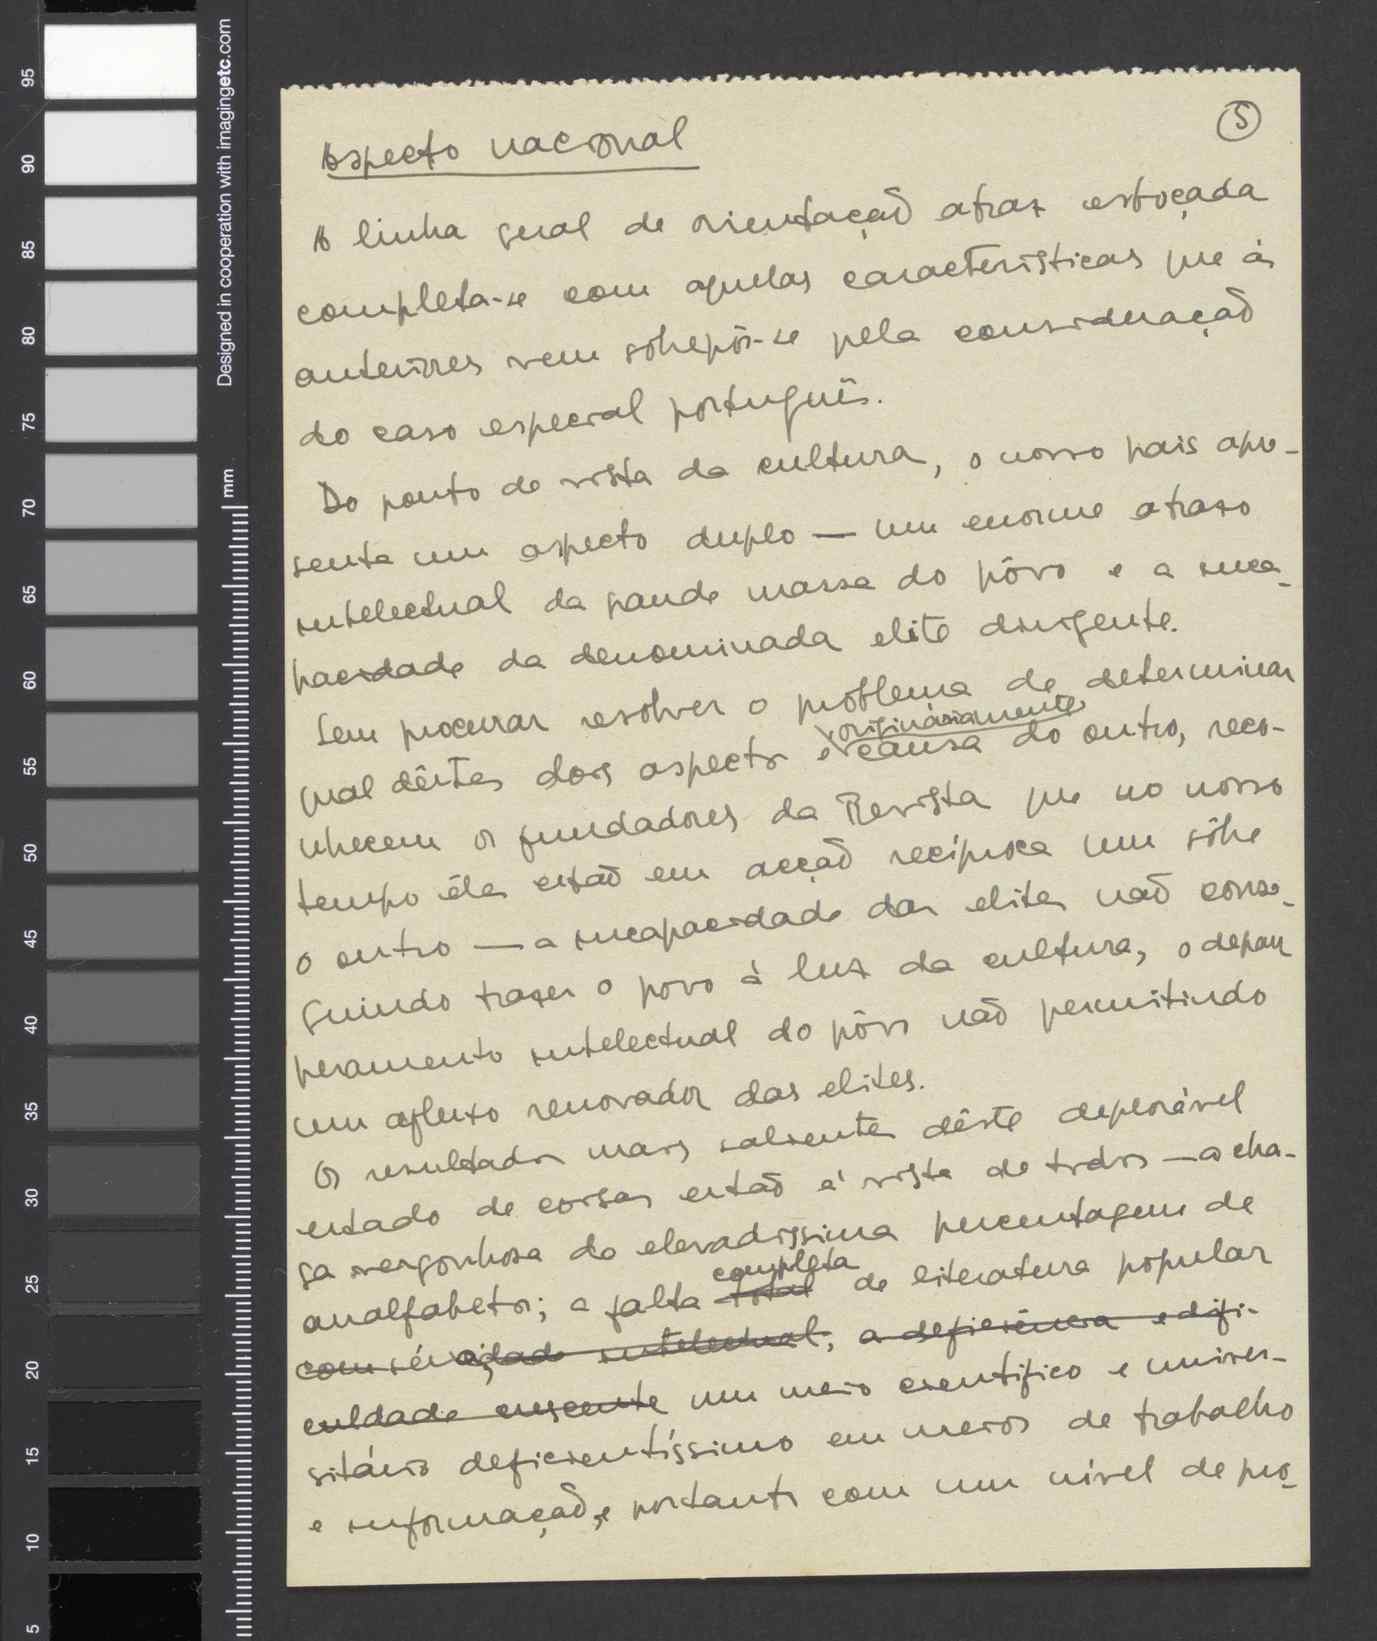 5
Aspecto nacional
A linha geral de orientação atraz esboçada
completa-se com aquelas características que às
anteriores vem sôbrepôr-se pela consideração
do caso especial português.
Do ponto de vista da cultura, o nosso pais apre-
senta um aspecto duplo — um enorme atraso
intelectual da grande massa do pôvo e a inca-
pacidade da denominada elite dirigente.
Sem procurar resolver o problema de determinar
originàriamente
qual dêstes dois aspectos é causa do outro, reco-
nhecem os fundadores da Revista que no nosso
tempo êles estão em acção recíproca um sôbre
o outro — a incapacidade das elites não conse-
guindo trazer o povo à luz da cultura, o depau
peramento intelectual do pôvo não permitindo
um afluxo renovador das elites.
Os resultados mais salientes dêste deplorável
estado de coisas estão à vista de todos — a cha-
ga vergonhosa da elevadíssima percentagem de
completa
analfabetos; a falta total de literatura popular
com seriedade intelectual; a deficiência e difi-
culdade crescente um meio cientifico e univer-
sitário deficientíssimo em meios de trabalho
e informação, e portanto com um nível de pro-
Designed in cooperation with imagingetc.com
mm
95
90
85
80
75
70
65
60
55
50
45
40
35
30
25
20
15
10
5